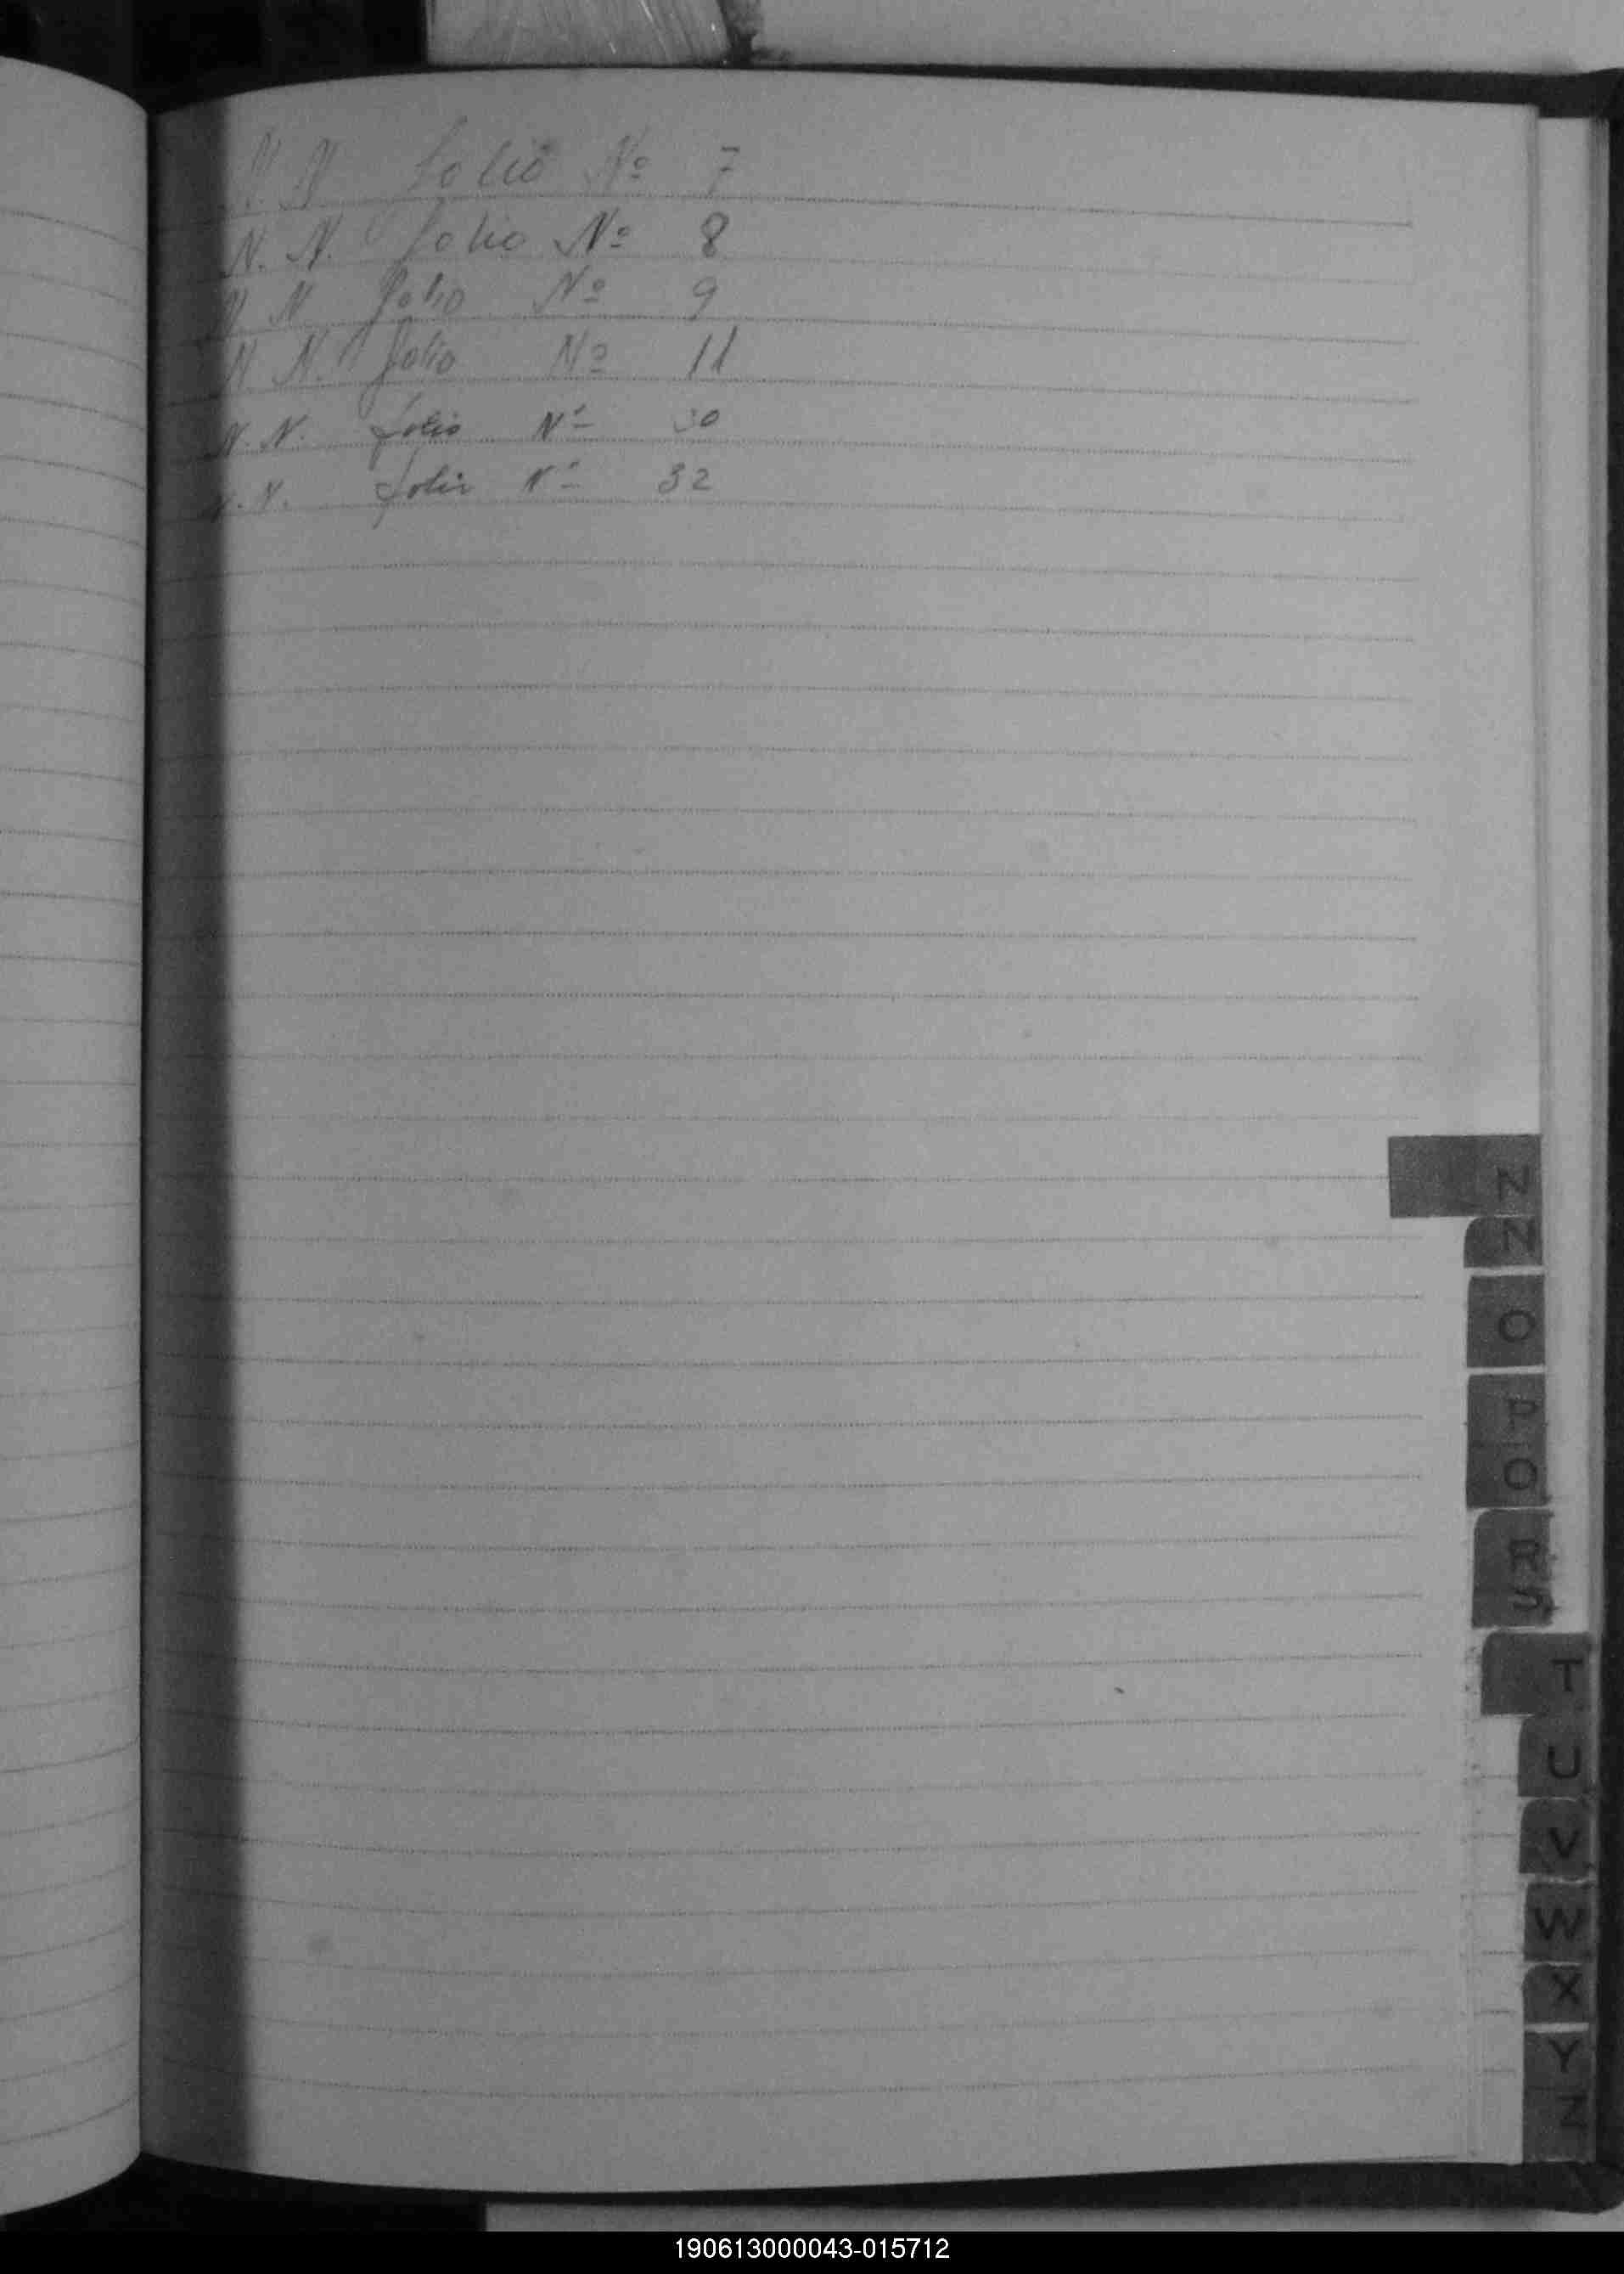 N. N. folio Nº 7
N. N. folio Nº 8
N N folio Nº 9
N. N. folio Nº 11
N. N. folio Nº 30
N. N. folio Nº 32
N
N
O
P
Q
R
S
T
U
V
W
X
Y
Z
190613000043-015712